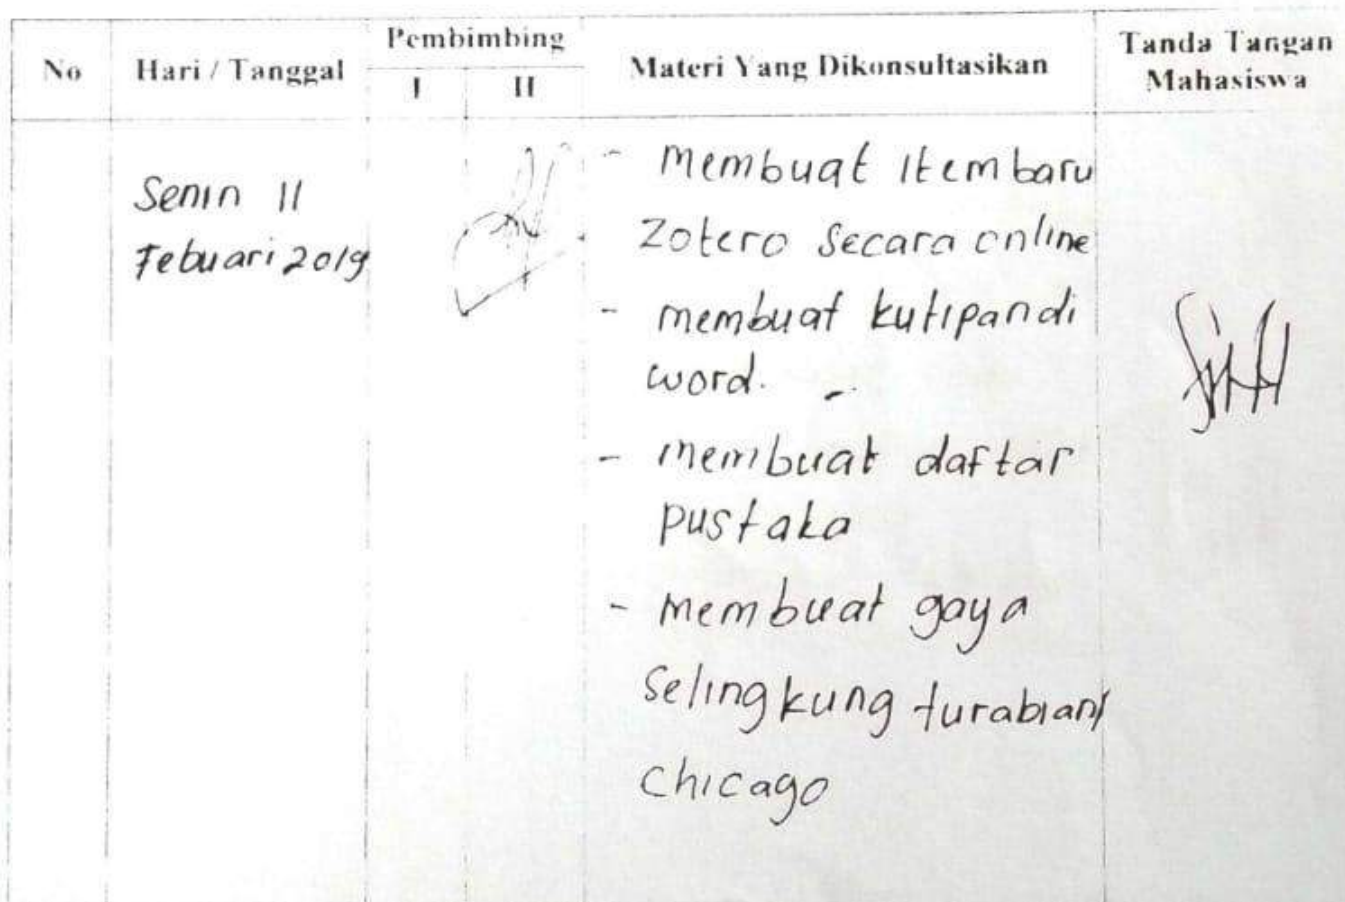 No Hari / Tanggal Pembimbing Materi Yang Dikonsultasikan Tanda Tangan
Mahasiswa
I II
Senin 11
Febuari 2019
- Membuat Item baru
Zotero Secara online
- membuat kutipan di
word. -
- membuat daftar
pustaka
- membuat gaya
Selingkung turabian/
Chicago